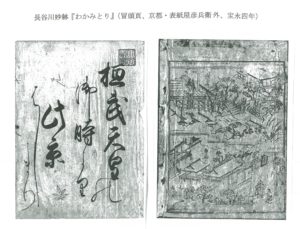 長谷川妙躰『わかみとり』（冒頭頁、京都・表紙屋彦兵衛外、宝永四年）
桓武天皇の
御時より
此京